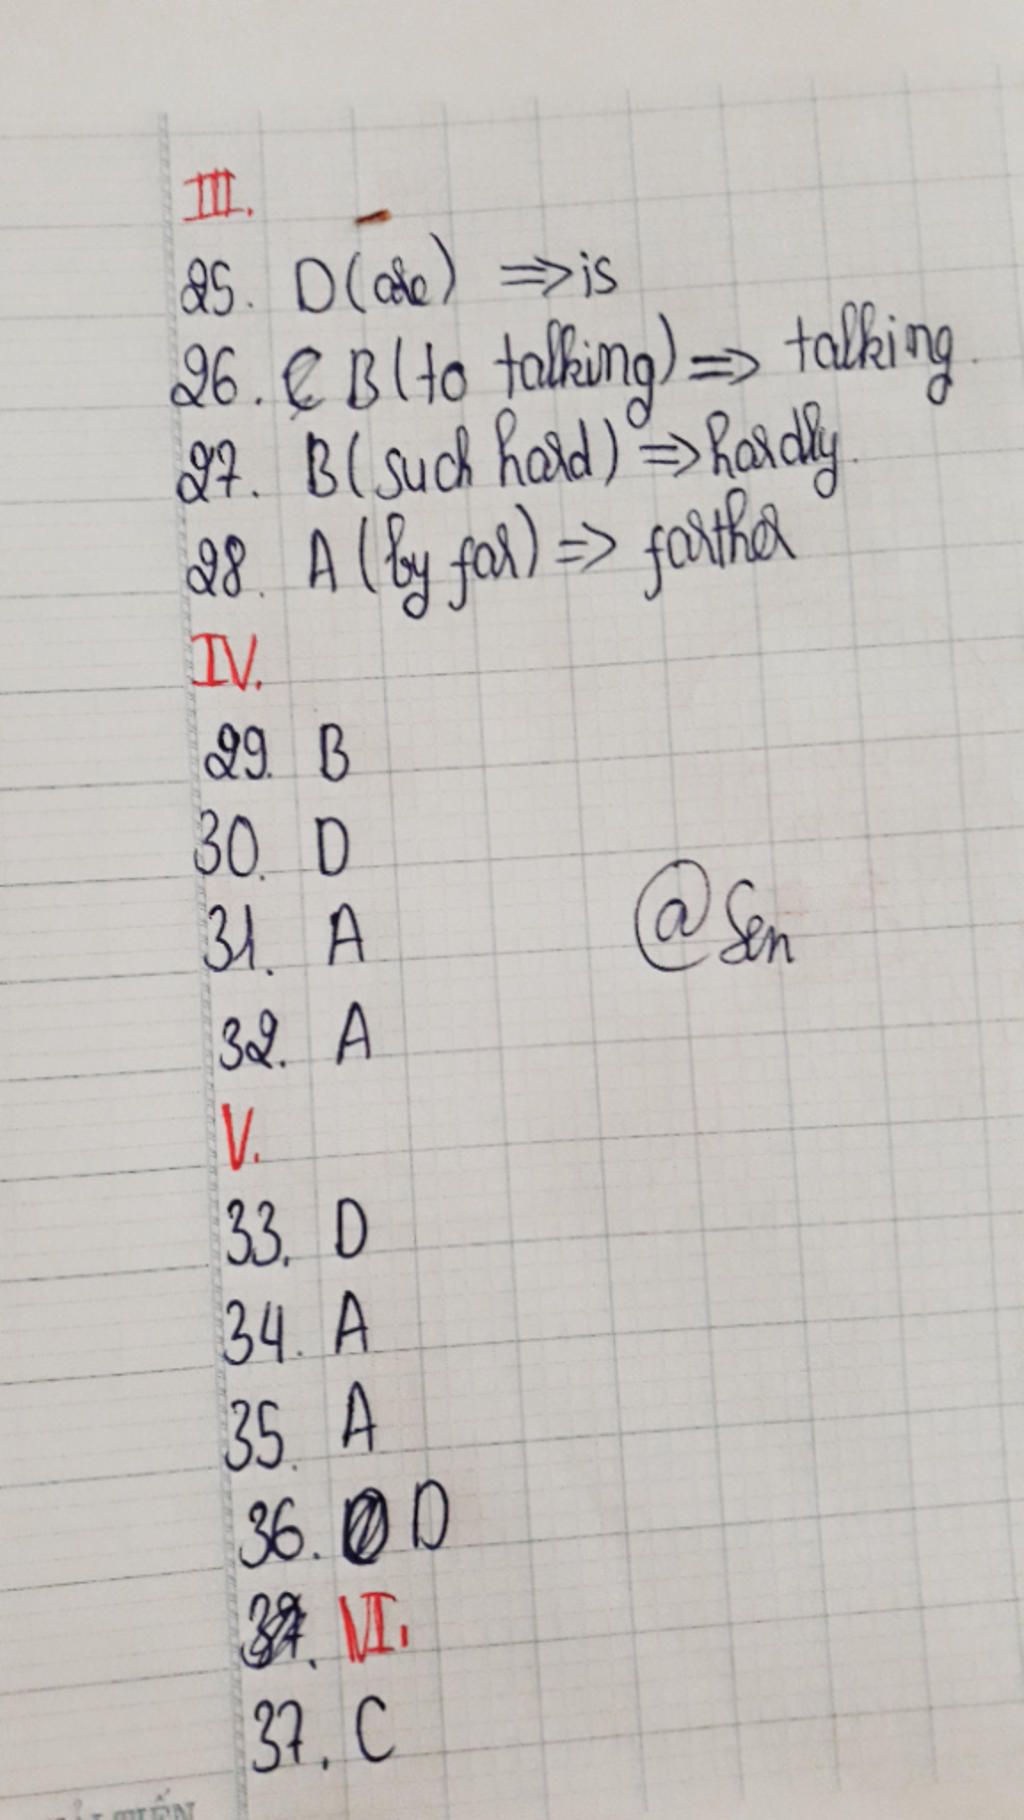 III.
25. D (are) => is
26. B (to talking) => talking.
27. B (such hard) => hardly.
28. A (by far) => farther
IV.
29. B
30. D
31. A
@Sen
32. A
V.
33. D
34. A
35. A
36. D
VI.
37. C
TIẾN